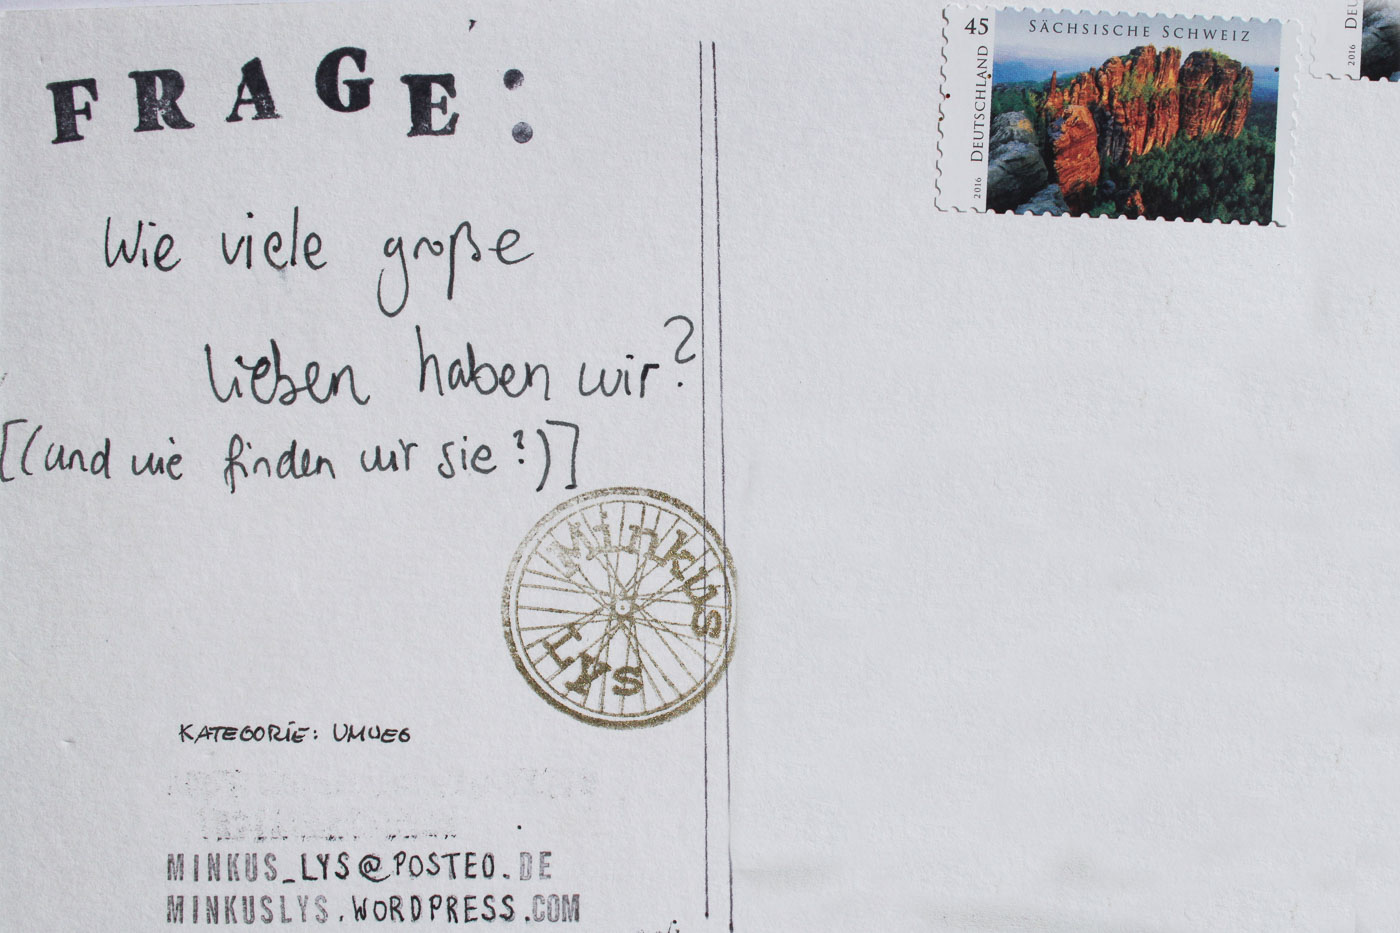 FRAGE:
Wie viele große
lieben haben wir?
[(und wie finden wir sie?)]
Minkus
Lys
KATEGORIE: UMWEG
MINKUS_LYS@POSTEO.DE
MINKUSLYS.WORDPRESS.COM
45
SÄCHSISCHE SCHWEIZ
2016 DEUTSCHLAND
2016 DEU